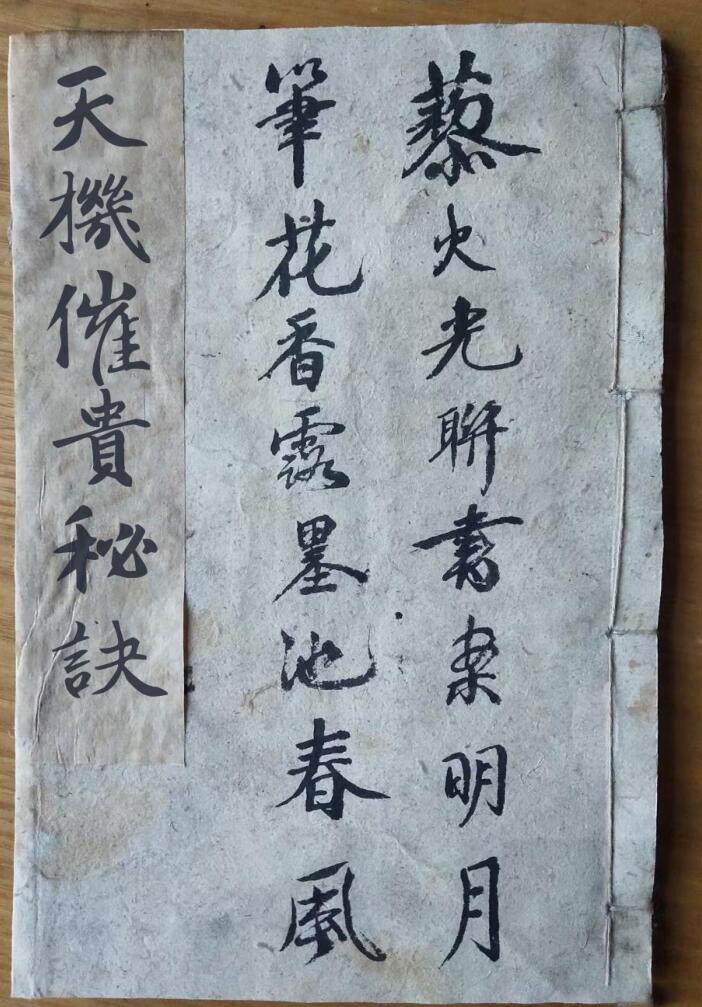 藜火光聯書案明月
筆花香露墨池春風
天機催貴秘訣